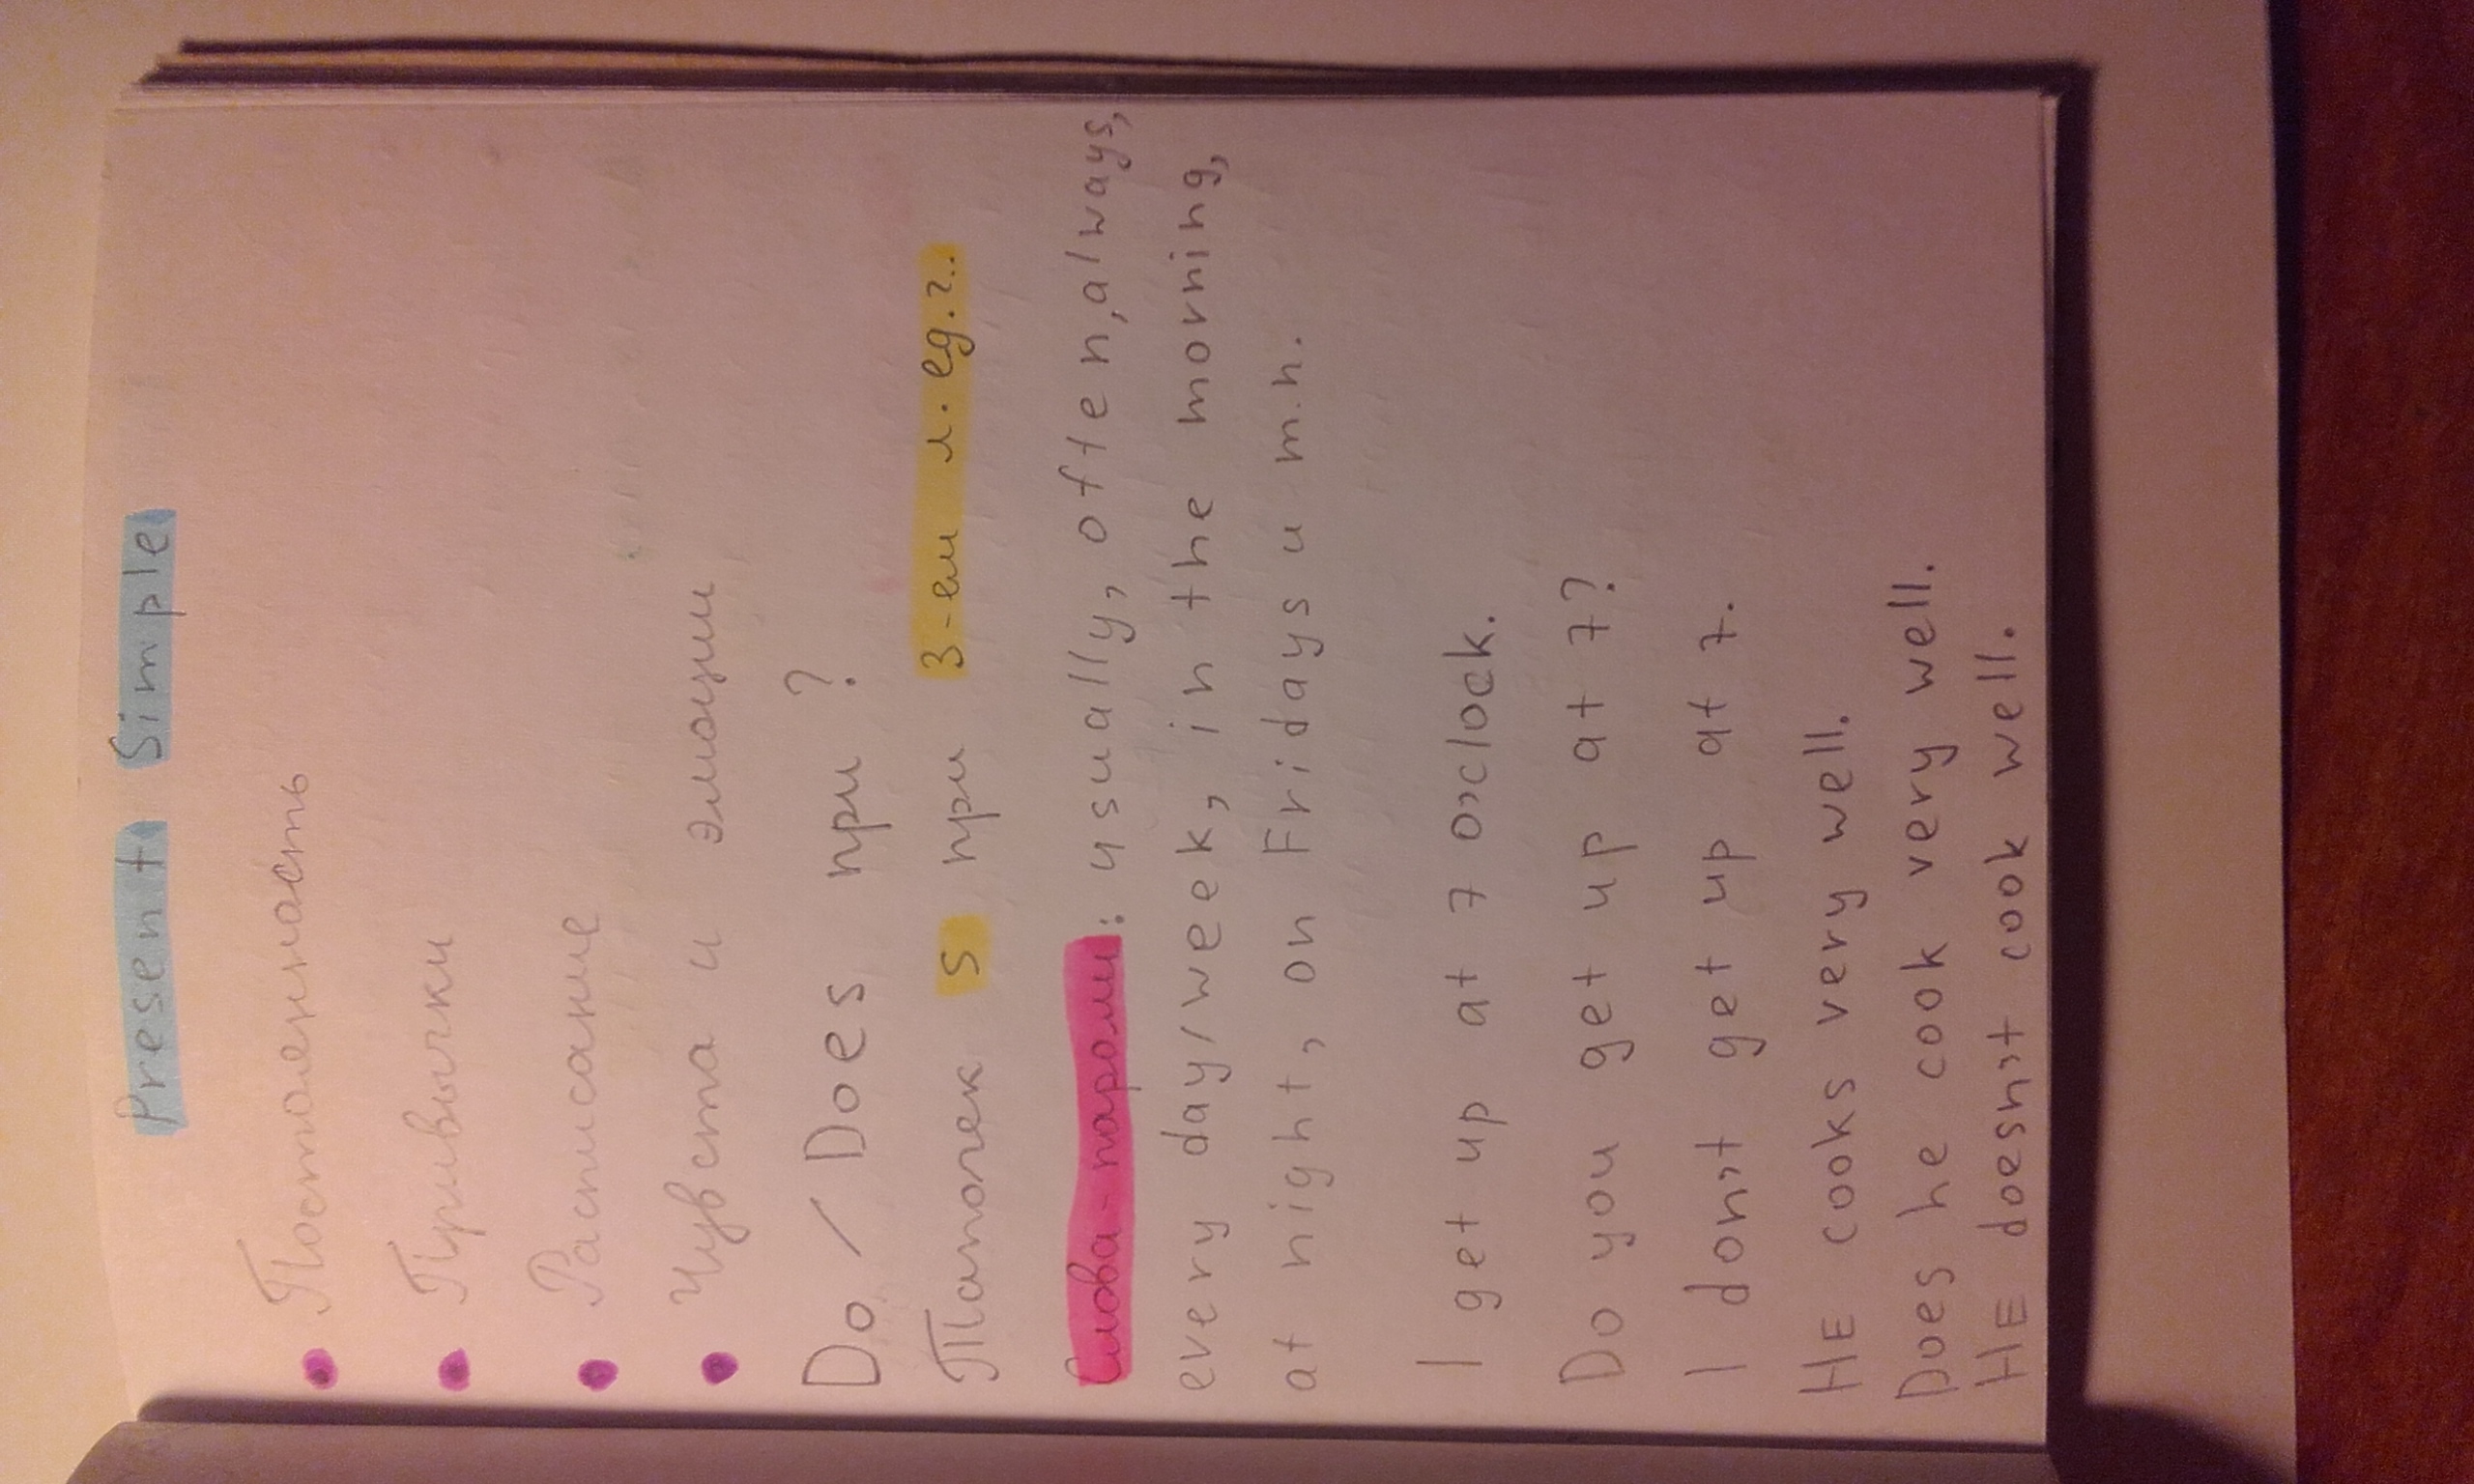 Present Simple
• Постоянность
• Привычки
• Расписание
• Чувства и эмоции
Do / Does при ?
Тапочек s при 3-ем л. ед.ч.
Слова-пароли: usually, often, always,
every day/week, in the morning,
at night, on Fridays и т.п.
I get up at 7 o'clock.
Do you get up at 7?
I don't get up at 7.
HE cooks very well.
Does he cook very well.
HE doesn't cook well.